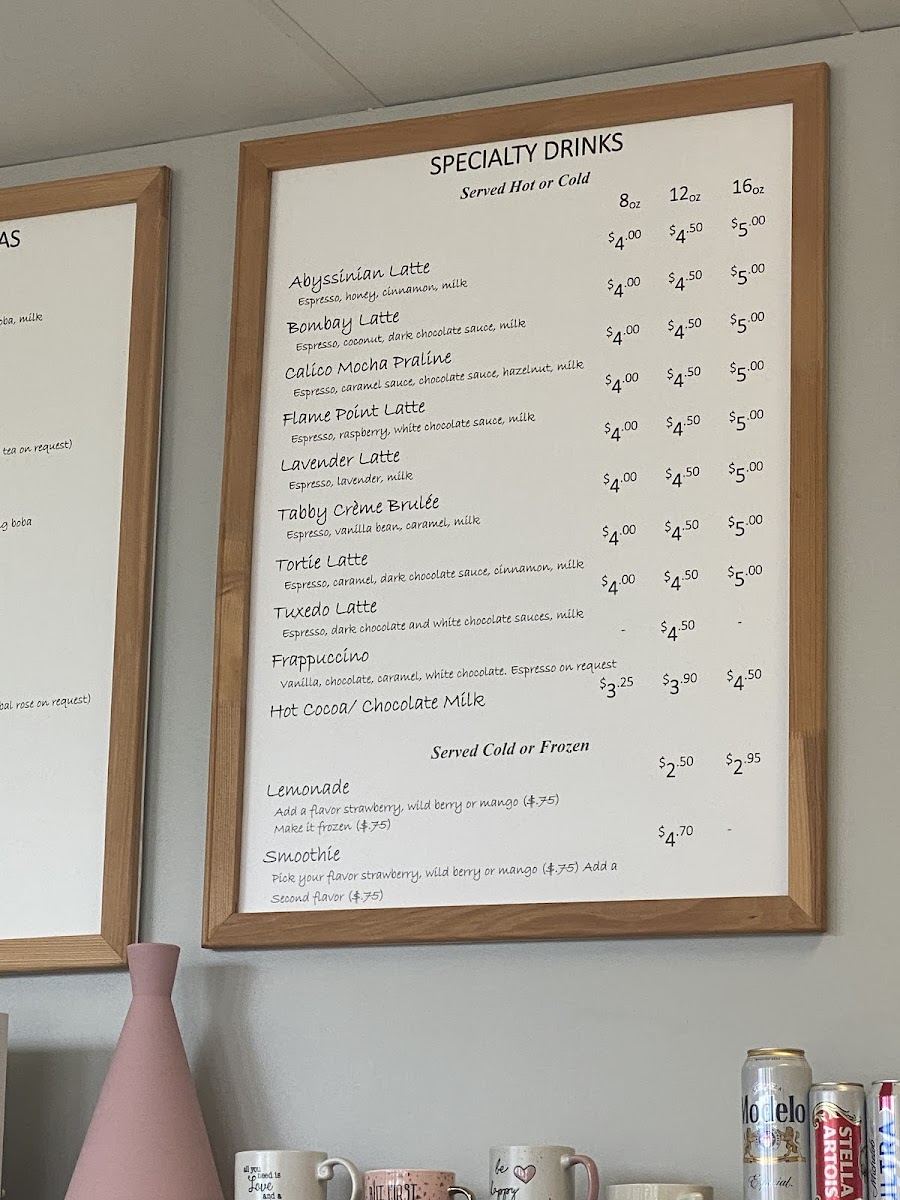 AS
oba, milk
tea on request)
g boba
bal rose on request)
SPECIALTY DRINKS
Served Hot or Cold
8oz 12oz 16oz
$4.00 $4.50 $5.00
Abyssinian Latte
Espresso, honey, cinnamon, milk
$4.00 $4.50 $5.00
Bombay Latte
Espresso, coconut, dark chocolate sauce, milk
$4.00 $4.50 $5.00
Calico Mocha Praline
Espresso, caramel sauce, chocolate sauce, hazelnut, milk
$4.00 $4.50 $5.00
Flame Point Latte
Espresso, raspberry, white chocolate sauce, milk
$4.00 $4.50 $5.00
Lavender Latte
Espresso, lavender, milk
$4.00 $4.50 $5.00
Tabby Crème Brulée
Espresso, vanilla bean, caramel, milk
$4.00 $4.50 $5.00
Tortie Latte
Espresso, caramel, dark chocolate sauce, cinnamon, milk
$4.00 $4.50 $5.00
Tuxedo Latte
Espresso, dark chocolate and white chocolate sauces, milk
- $4.50 -
Frappuccino
Vanilla, chocolate, caramel, white chocolate. Espresso on request
$3.25 $3.90 $4.50
Hot Cocoa/ Chocolate Milk
Served Cold or Frozen
$2.50 $2.95
Lemonade
Add a flavor strawberry, wild berry or mango ($.75)
Make it frozen ($.75)
$4.70 -
Smoothie
Pick your flavor strawberry, wild berry or mango ($.75) Add a
Second flavor ($.75)
all you
need is
Love
and a
BUT FIRST
be
happy
Modelo
Especial
STELLA
ARTOIS
Michelob
ULTRA